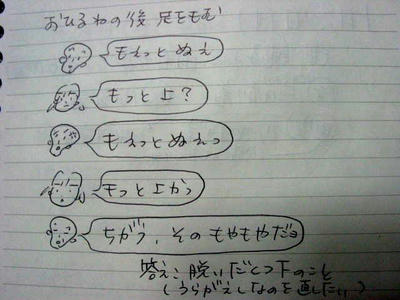 おひるねの後 足をもむ
もえっとぬえ
もっと上?
もえっとぬえっ
もっと上かっ
ちがう、そのもやもやだョ
答え: 脱いだくつ下のこと
(うらがえしなのを直したい)